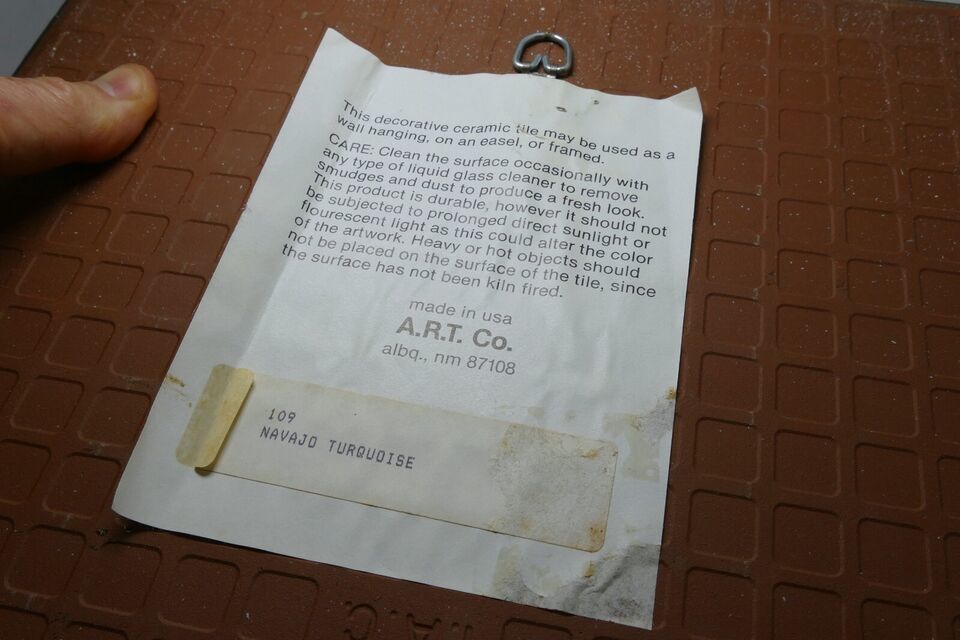 This decorative ceramic tile may be used as a
wall hanging, on an easel, or framed.
CARE: Clean the surface occasionally with
any type of liquid glass cleaner to remove
smudges and dust to produce a fresh look.
This product is durable, however it should not
be subjected to prolonged direct sunlight or
flourescent light as this could alter the color
of the artwork. Heavy or hot objects should
not be placed on the surface of the tile, since
the surface has not been kiln fired.
made in usa
A.R.T. Co.
albq., nm 87108
109
NAVAJO TURQUOISE